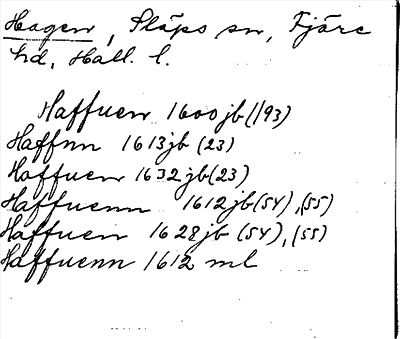 Hagen, Släps sn, Fjäre
hd, Hall. l.
Haffuen 1600 jb (193)
Haffnn 1613 jb (23)
Haffuen 1632 jb (23)
Haffuenn 1612 jb (54), (55)
Haffuen 1628 jb (54), (55)
Haffuenn 1612 ml